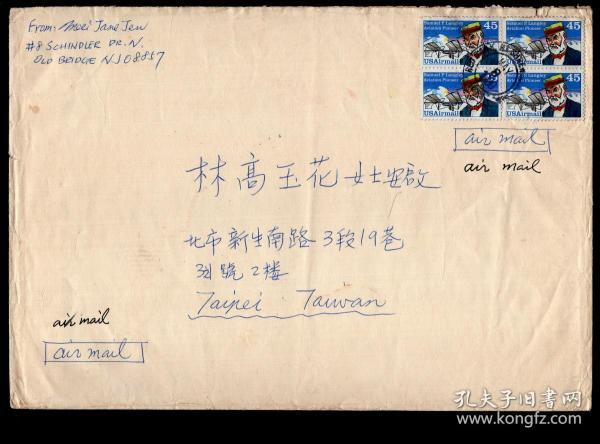 From: Mei Jane Jen
#8 SCHINDLER DR. N.
OLD BRIDGE NJ 08857
Samuel P. Langley
Aviation Pioneer
45
USAirmail
Samuel P. Langley
Aviation Pioneer
45
USAirmail
Samuel P. Langley
Aviation Pioneer
45
USAirmail
Samuel P. Langley
Aviation Pioneer
45
USAirmail
air mail
air mail
林高玉花女士安啟
北市新生南路3段19巷
號2楼
Taipei Taiwan
air mail
air mail
孔夫子旧书网
www.kongfz.com